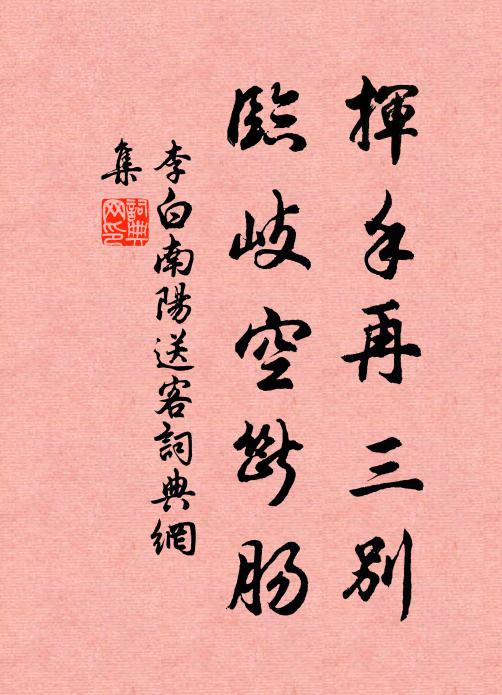 揮手再三別
臨岐空斷腸
李白南陽送客詞典網
集
詞典
网印